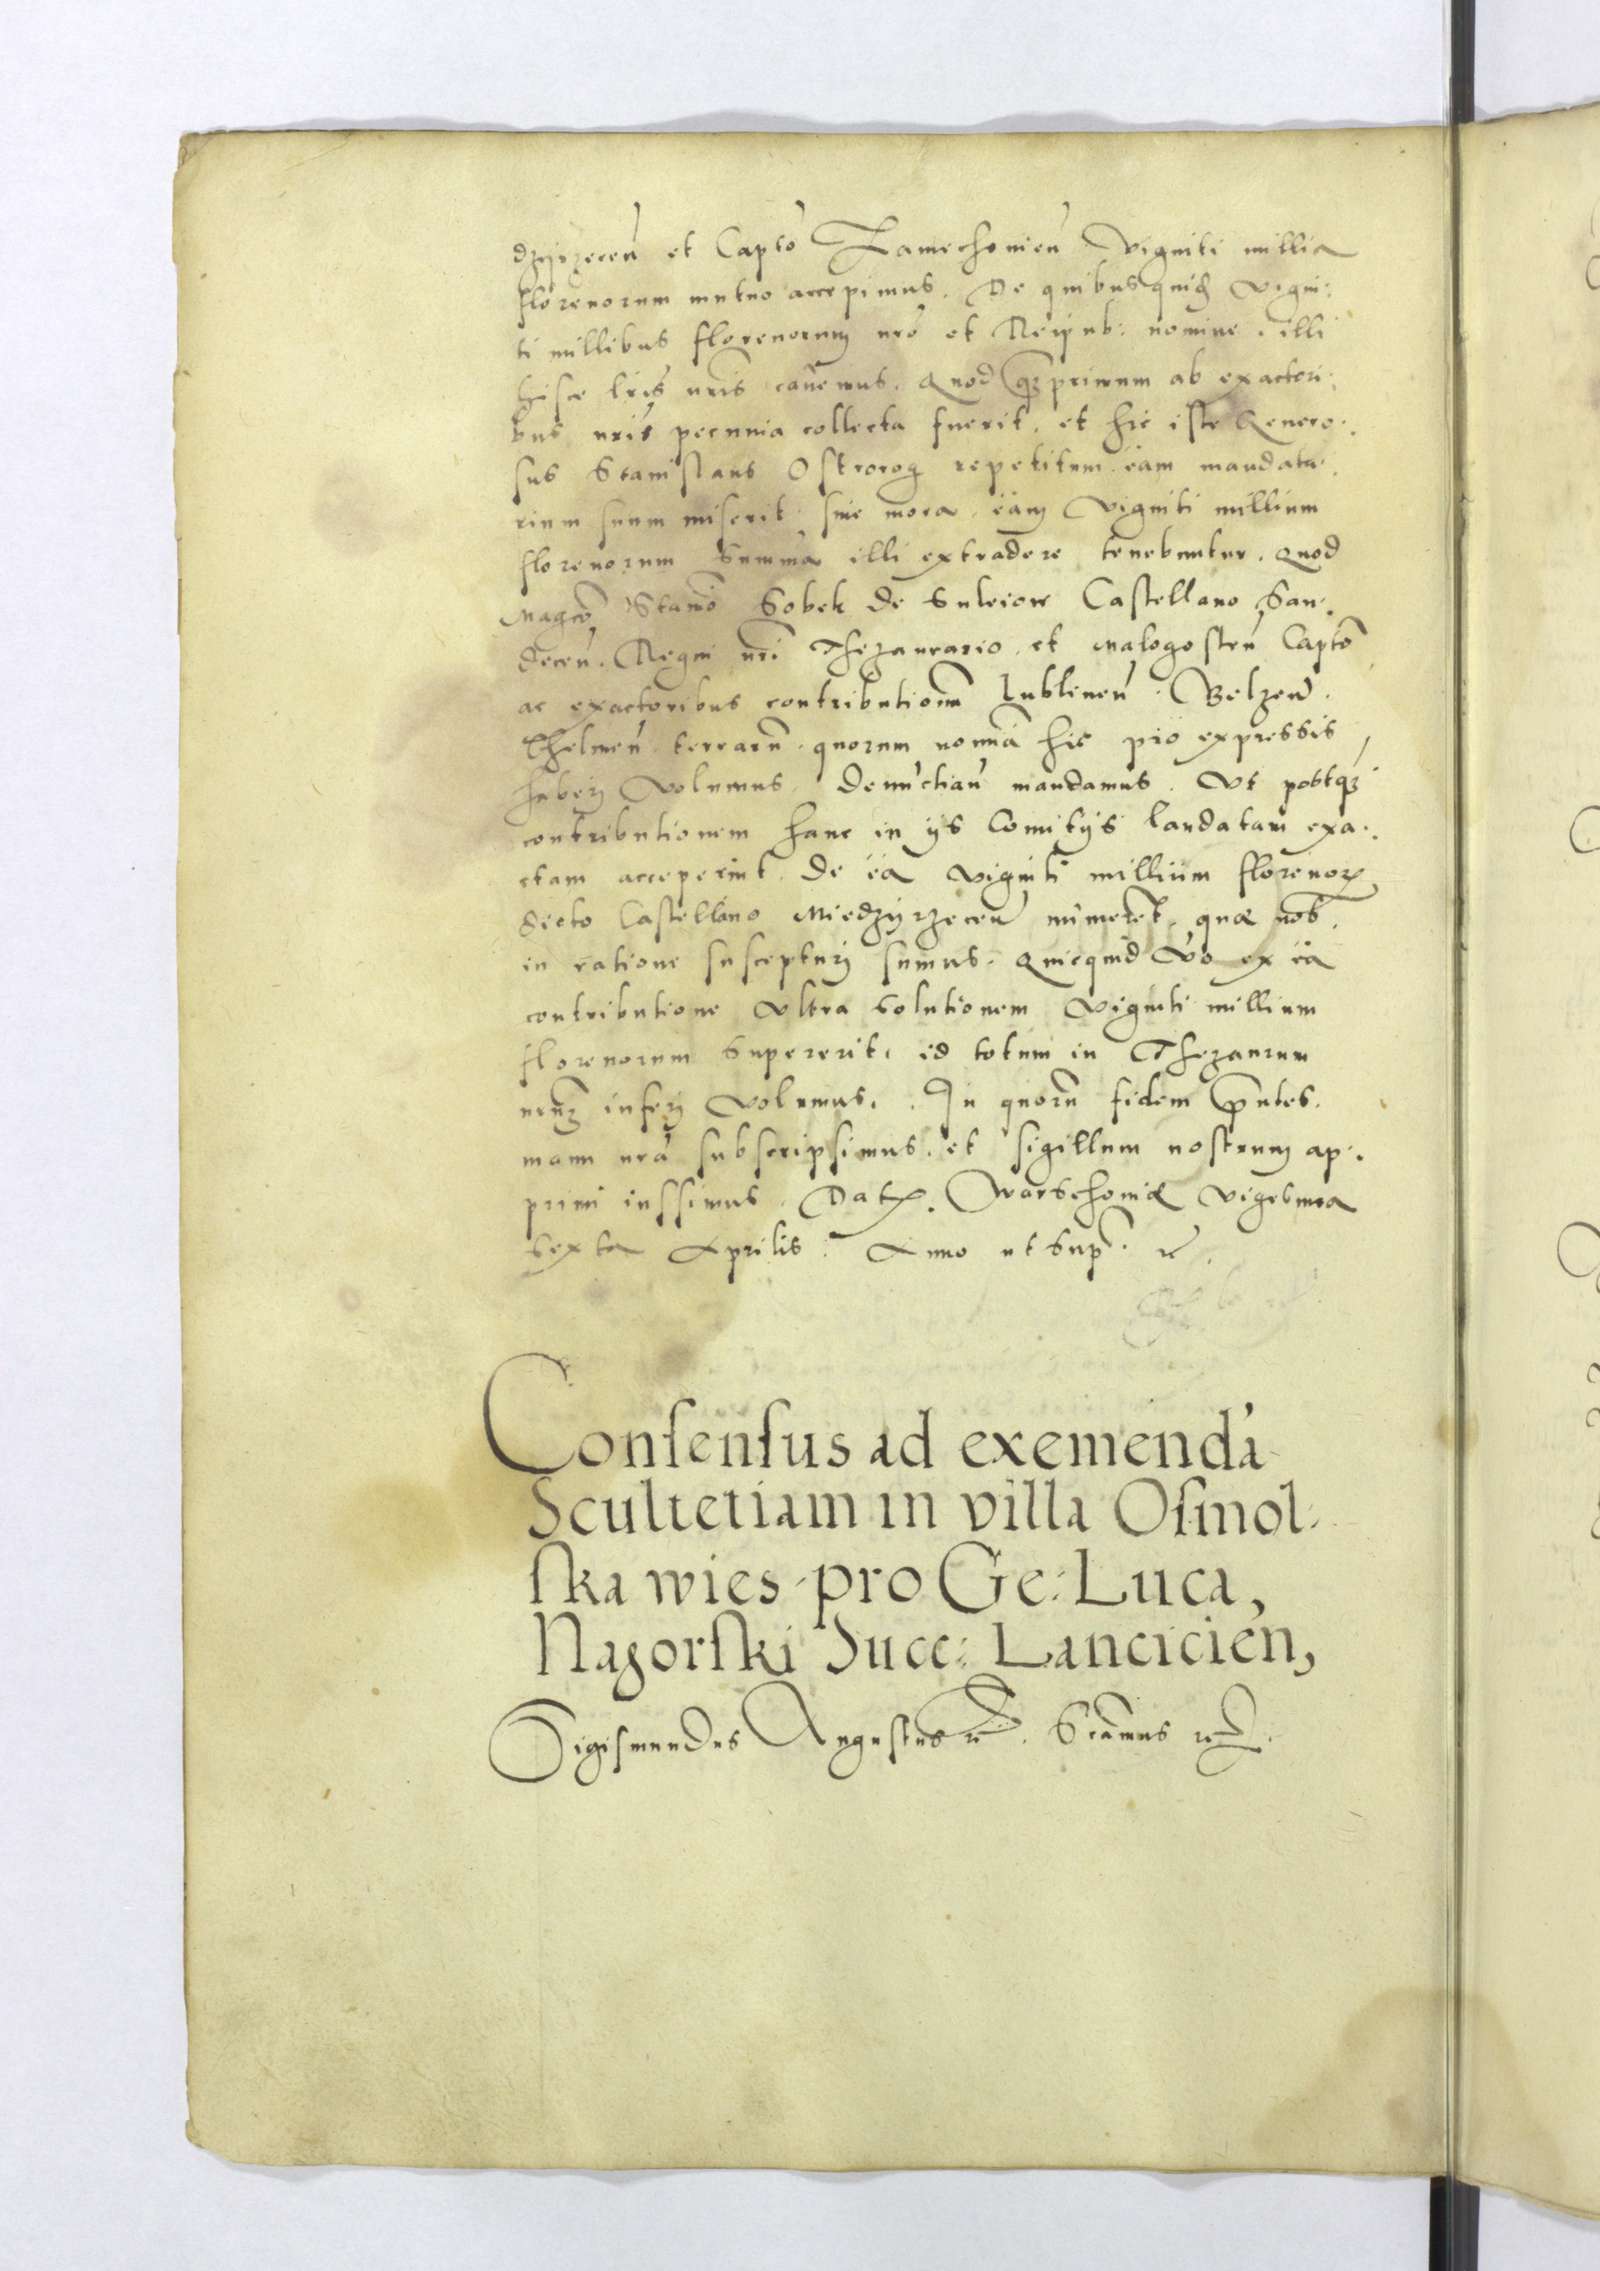 dzijrzeceń et Capto Zamechovień Viginti millia
florenorum mutuo accepimus. De quibus quid Vigin:
ti millibus florenorum nro et Reipub: nomine. illi
hisce lris nris cavemus. Quod qprimum ab exactori:
bus nris pecunia collecta fuerit. et hic iste Genero:
sus Stanislaus Ostrorog repetitum eam mandata:
rium suum miserit sine mora. eam Viginti millium
florenorum Summa illi extradere tenebuntur. Quod
Magco Stano Sobek de Suleiow Castellano San:
deceń. Regni nri Thezaurario. et Malogosteń Capto
ac exactoribus contributionu Lublineń. Belzeń.
Chelmeń. terraru. quorum nomina hic pro expressis
haberi Volumus. mandamus. Ut postq
contributionem hanc in ijs Comitijs laudatam exa:
ctam acceperint. De ea viginti millium florenor
Dicto Castellano Miedzijrzeceń numerent. quae nob.
in ratione suscepturi sumus. Quicquid Vo ex ea
contributione Ultra solutionem Viginti millium
florenorum supererit. id totum in Thezaurum
nrum inferri Volumus. In quoru fidem pntes.
manu nra subscripsimus. et sigillum nostrum ap:
primi iussimus. Dat. Warschoviae Vigesima
sexta Aprilis. Anno ut supr. rc.
Consensus ad exemenda
Scultetiam in villa Osmol:
ska wies pro Ge: Luca,
Nagorski Succ: Lancicień,
Sigismundus Augustus rc. Scamus rc.